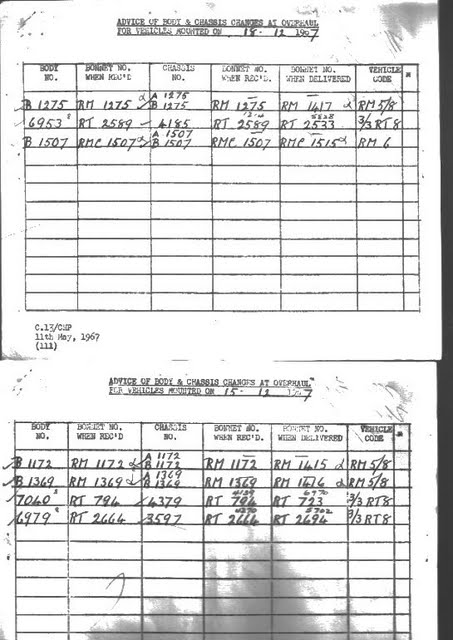 ADVICE OF BODY & CHASSIS CHANGES AT OVERHAUL
FOR VEHICLES MOUNTED ON 18 - 12 1967
BODY NO. BONNET NO. WHEN REC'D CHASSIS NO. BONNET NO. WHEN REC'D. BONNET NO. WHEN DELIVERED VEHICLE CODE *
A 1275
B 1275 RM 1275 α B 1275 RM 1275 RM 1417 α RM 5/8
6953 RT 2589 4185 RT 2589 RT 2533 3/3 RT 8
A 1507
B 1507 RMC 1507 α B 1507 RMC 1507 RMC 1515 α RM 6
C.13/CMP
11th May, 1967
(111)
ADVICE OF BODY & CHASSIS CHANGES AT OVERHAUL
FOR VEHICLES MOUNTED ON 15 - 12 1967
BODY NO. BONNET NO. WHEN REC'D CHASSIS NO. BONNET NO. WHEN REC'D. BONNET NO. WHEN DELIVERED VEHICLE CODE *
A 1172
B 1172 RM 1172 α B 1172 RM 1172 RM 1415 α RM 5/8
A 1369
B 1369 RM 1369 α B 1369 RM 1369 RM α RM 5/8
7040 RT 794 4379 RT 794 RT 723 3/3 RT 8
6979 RT 2644 3597 RT 2644 RT 2694 3/3 RT 8